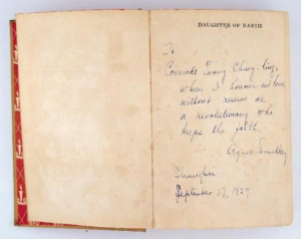 DAUGHTER OF EARTH
To
Comrade Soong Ching-ling,
whom I honour and love
without reserve as
a revolutionary who
keeps the faith.
Agnes Smedley
Shanghai
September 17, 1929